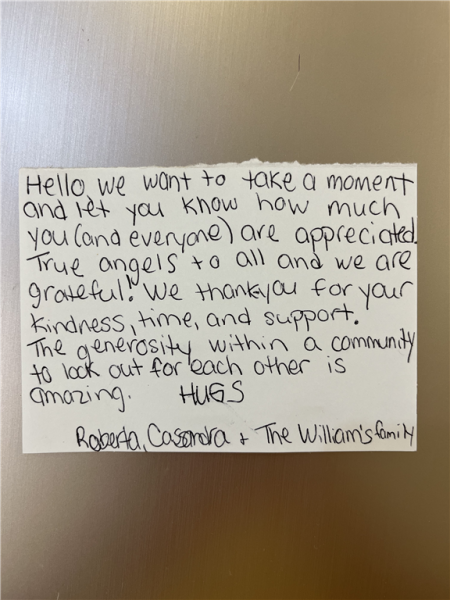 Hello, we want to take a moment
and let you know how much
you (and everyone) are appreciated.
True angels to all and we are
grateful! We thank you for your
kindness, time, and support.
The generosity within a community
to look out for each other is
amazing. HUGS
Roberta, Cassandra + The William's family